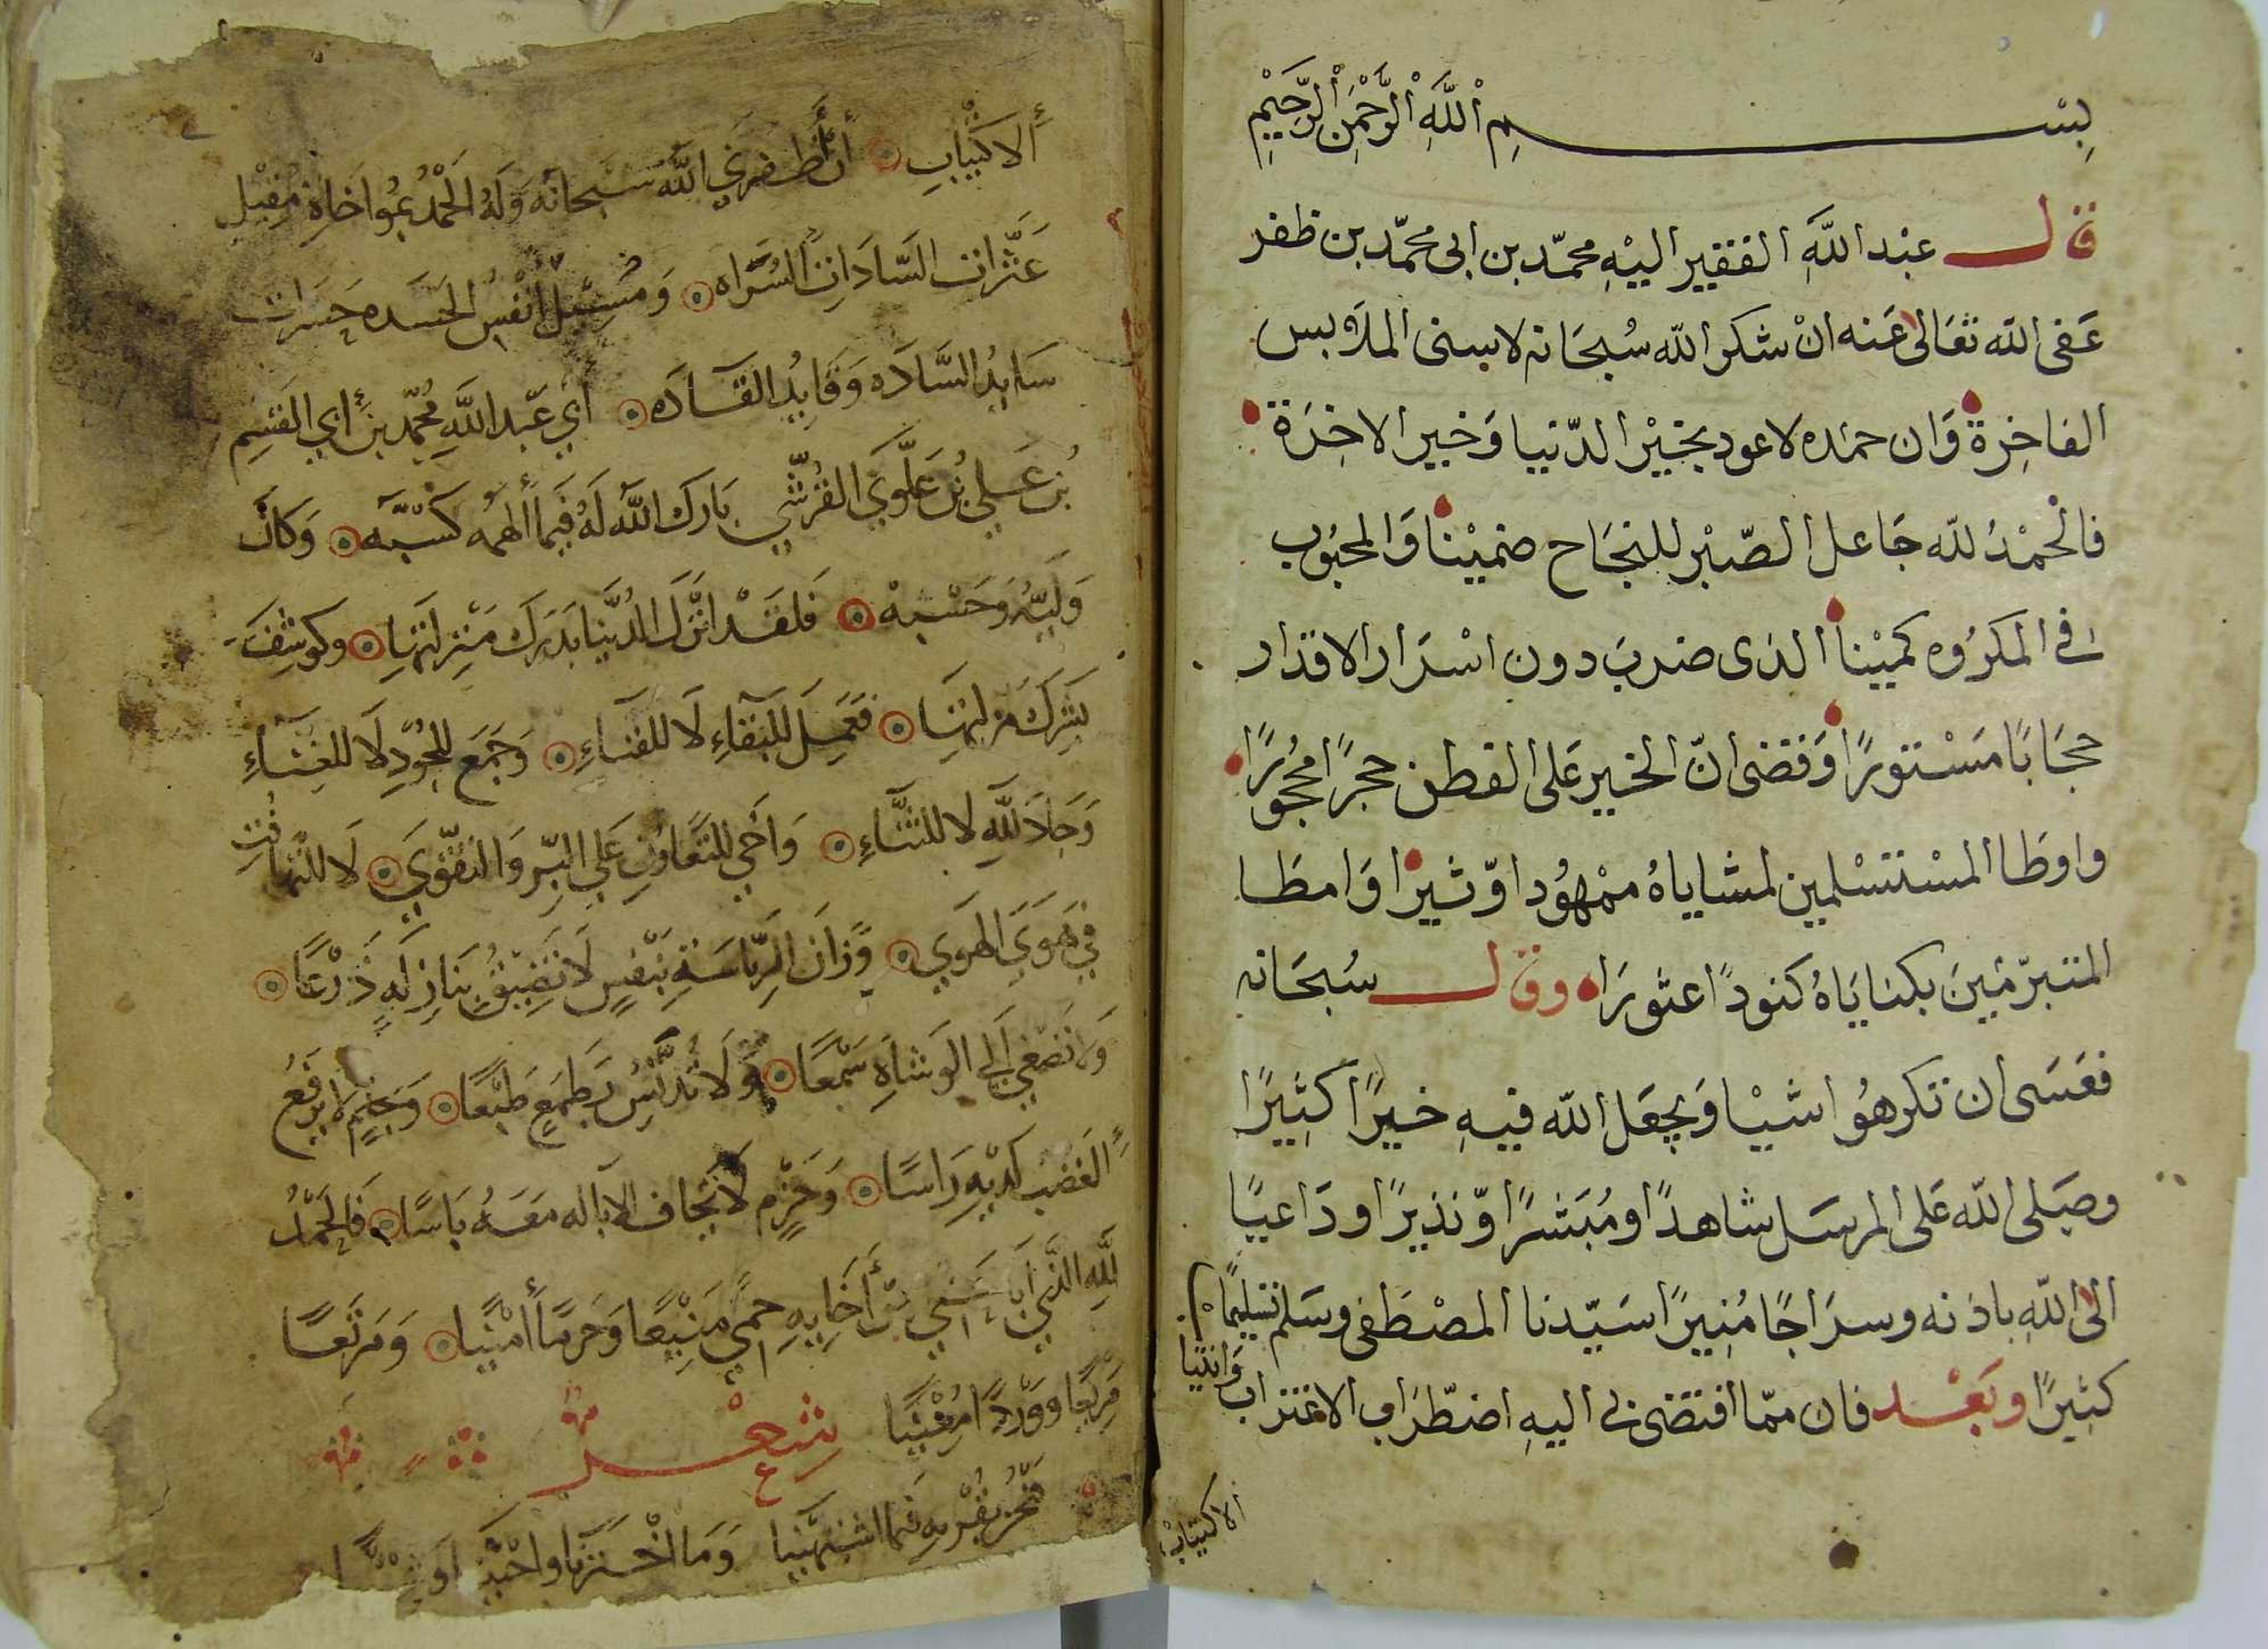 بسم الله الرحمن الرحيم
قال عبد الله الفقير اليه محمد بن ابى محمد بن ظفر
عفى الله تعالى عنه ان شكر الله سبحانه لاسنى الملابس
الفاخرة وان حمده لاعود بخير الدنيا وخير الاخرة
فالحمد لله جاعل الصبر للنجاح ضمينا والمحبوب
فى المكروه كمينا الذى ضرب دون اسرار الاقدار
حجابا مستورا وقضى ان الخير على الفطن حجرا محجورا
واوطا المستسلمين لمشاياه ممهودا وثيرا وامطا
المتبرمين بكناياه كنودا عثورا وقال سبحانه
فعسى ان تكرهوا شيا ويجعل الله فيه خيرا كثيرا
وصلى الله على المرسل شاهدا ومبشرا ونذيرا وداعيا
الى الله باذنه وسراجا منيرا سيدنا المصطفى وسلم تسليما
كثيرا وبعد فان مما افتضى بى اليه اضطراب الاغتراب وانتيا
الاكتياب
ألاكتياب أن أظفرني الله سبحانه وله الحمد بمواخاة مقيل
عثرات السادات السراه ومسيل أنفس الحسده حسرات
سايد الساده وقايد القاده أبي عبد الله محمد بن أبي القسم
بن علي بن علوي القرشي بارك الله له فيما ألهمه كسبه وكان
وليه وحسبه فلقد انزل الدنيا بدرك منزلتها وكوشف
بشرك مزلتها فعمل للبقاء لا للفناء وجمع للجود لا للغناء
وجاد لله لا للثناء واخى للتعاون على البر والتقوي لا للتهافت
في هوي الهوي وزان الرياسة بنفس لا تضيق بنازلة ذرعا
ولا تصغي الى الوشاة سمعا ولا تدنس بطمع طبعا وحلم لا يرفع
الغضب لديه راسا وحزم لا تخاف الابالة معه باسا فالحمد
لله الذي من أخايه حمي منيعا وحرما أمينا ومرتعا
مريعا ووردا معينا شعر
فنحن بقربه فيما اشتهينا وما اخترنا